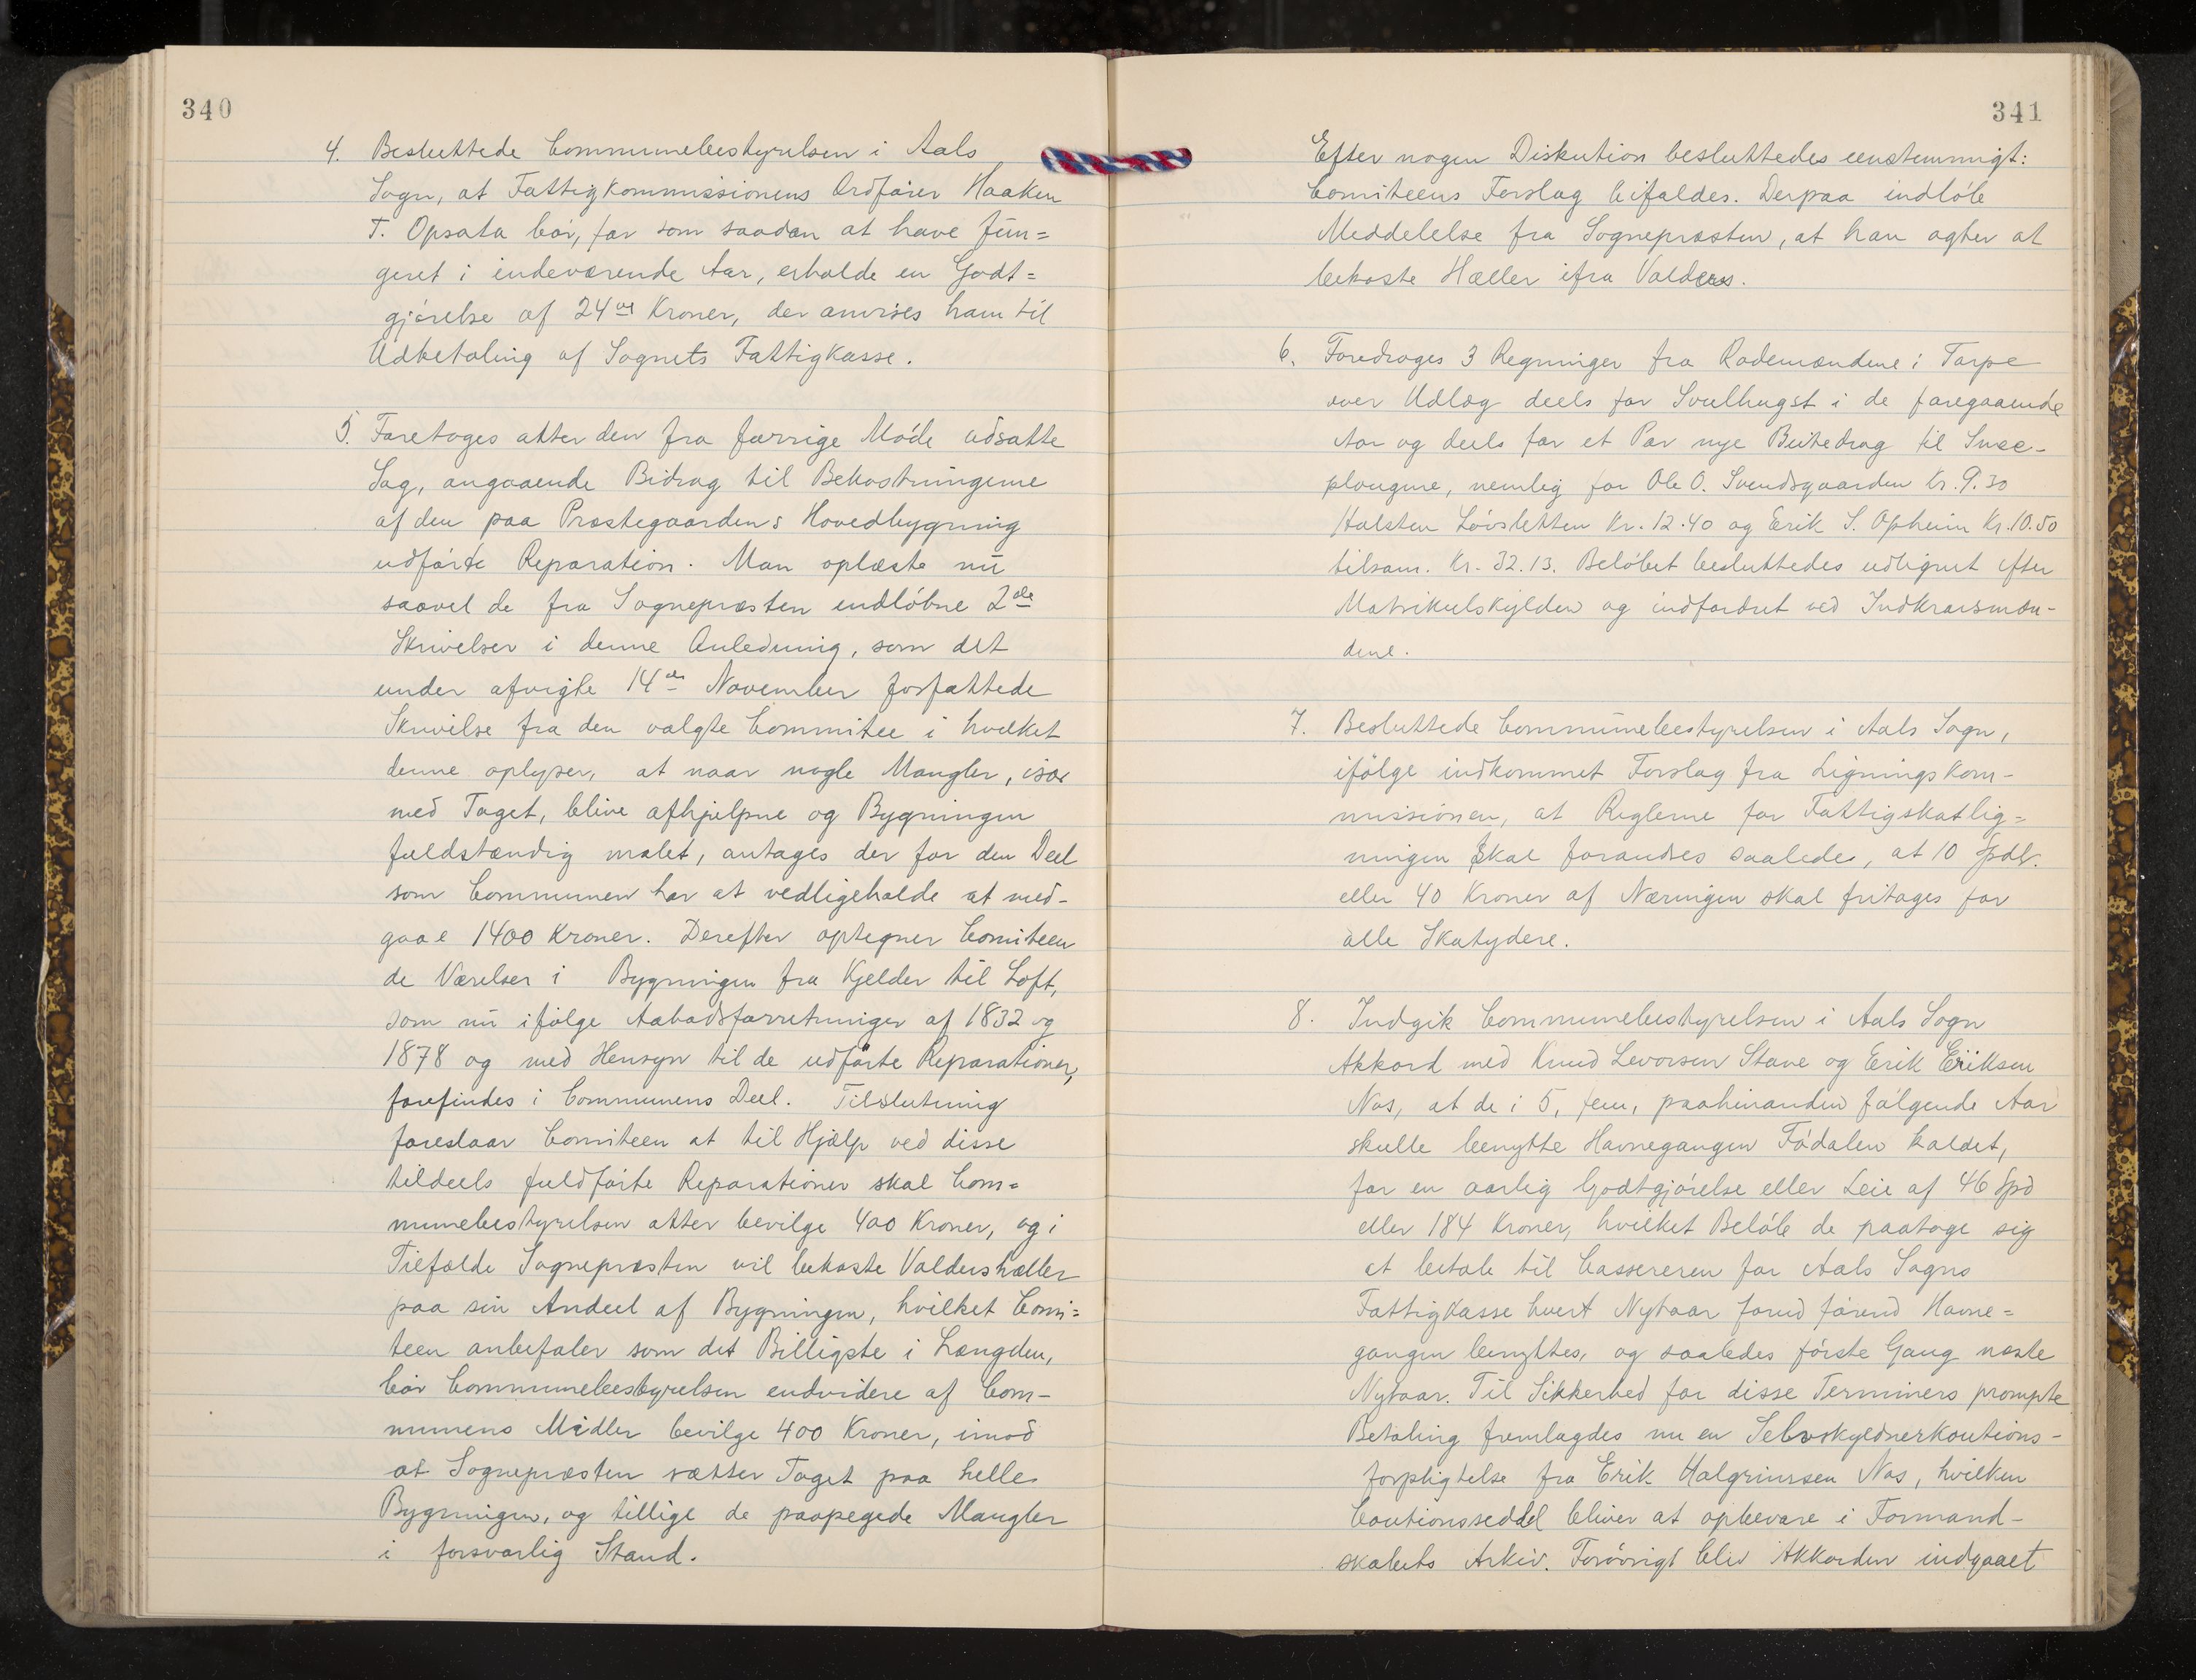 340
4. Besluttede Communebestyrelsen i Aals
Sogn, at Fattigkommissionens Ordfører Haaken
T. Opsata bør, for som saadan at have fun=
geret i indeværende Aar, erholde en Godt=
gjørelse af 24 Kroner, der anvises ham til
Udbetaling af Sognets Fattigkasse.
5. Foretoges atter den fra forrige Møde udsatte
Sag, angaaende Bidrag til Bekostningerne
af den paa Præstegaardens Hovedbygning
udførte Reparation. Man oplæste nu
saavel de fra Sognepræsten indløbne 2de
Skrivelser i denne Anledning, som det
under afvigte 14de November forfattede
Skrivelse fra den valgte Commitee i hvilket
denne oplyser, at naar nogle Mangler, især
med Taget, blive afhjelpne og Bygningen
fuldstændig malet, antages der for den Deel
som Communen har at vedligeholde at med-
gaae 1400 Kroner. Derefter optegner Comiteen
de Værelser i Bygningen fra Kjelder til Loft,
som nu ifølge Aabodsforretninger af 1832 og
1878 og med Hensyn til de udførte Reparationer,
forefindes i Communens Deel. Tilslutning
foreslaar Comiteen at til Hjælp ved disse
tildeels fuldførte Reparationer skal Com=
munebestyrelsen atter bevilge 400 Kroner, og i
Tilfælde Sognepræsten vil bekoste Valdershæller
paa sin Andeel af Bygningen, hvilket Comi=
teen anbefaler som det Billigste i Længden,
bør Communebestyrelsen endvidere af Com-
munens Midler bevilge 400 Kroner, imod
at Sognepræsten sætter Taget paa helle
Bygningen, og tillige de paapegede Mangler
i forsvarlig Stand.
341
Efter nogen Diskution besluttedes eenstemmigt:
Comiteens Forslag bifaldes. Derpaa indløb
Meddelelse fra Sognepræsten, at han agter at
bekoste Hæller ifra Valders.
6. Foredroges 3 Regninger fra Rodemændene i Torpe
over Udlæg deels for Svelhugst i de foregaaende
Aar og deels for et Par nye Beitedrag til Snee-
plougene, nemlig for Ole O. Svendsgaarden Kr. 9.30
Halsten Løvsletten Kr. 12.40 og Erik S. Opheim Kr. 10.50
tilsam. Kr. 32.13. Beløbet besluttedes udlignet efter
Matrikulskylden og indfordret ved Indkrævsmæn-
dene.
7. Besluttede Communebestyrelsen i Aals Sogn,
ifølge indkommet Forslag fra Ligningskom-
missionen, at Reglerne for Fattigskatlig=
ningen Skal forandres saaledes, at 10 Spdlr.
eller 40 Kroner af Næringen skal fritages for
alle Skatydere.
8. Indgik Communebestyrelsen i Aals Sogn
Akkord med Knud Levorsen Stave og Erik Eriksen
Nos, at de i 5, fem, paahinanden følgende Aar
skulle benytte Havnegangen Fødalen kaldet,
for en aarlig Godtgjørelse eller Leie af 46 Spd
eller 184 Kroner, hvilket Beløb de paatoge sig
at betale til Cassereren for Aals Sogns
Fattigkasse hvert Nytaar forud førend Havne=
gangen benyttes, og saaledes første Gang næste
Nytaar. Til Sikkerhed for disse Terminers prompte
Betaling fremlagdes nu en Selvskyldnerkoutions-
forpligtelse fra Erik Halgrimsen Nos, hvilken
Coutionsseddel bliver at opbevare i Formand-
skabets Arkiv. Forøvrigt blev Akkorden indgaaet